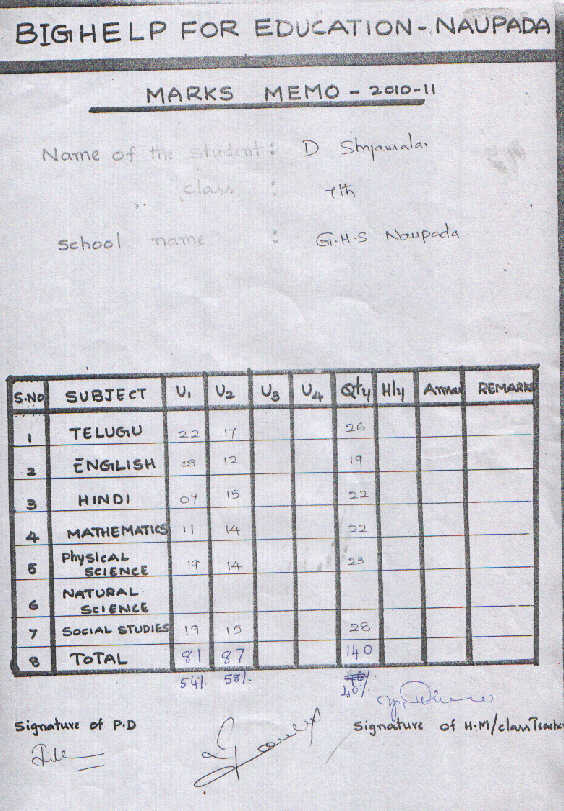 BIGHELP FOR EDUCATION - NAUPADA
MARKS MEMO - 2010-11
Name of the student : D Shyamala
class : 7th
School name : G.H.S Naupada
S.No SUBJECT U1 U2 U3 U4 Qtly Hly Annual REMARKS
1 TELUGU 22 17 26
2 ENGLISH 12 19
3 HINDI 07 15 22
4 MATHEMATICS 11 14 22
5 Physical SCIENCE 19 14 23
6 NATURAL SCIENCE
7 SOCIAL STUDIES 19 15 28
8 TOTAL 81 87 140
54% 58%. 40%
Signature of P.D Signature of H.M/class Teacher